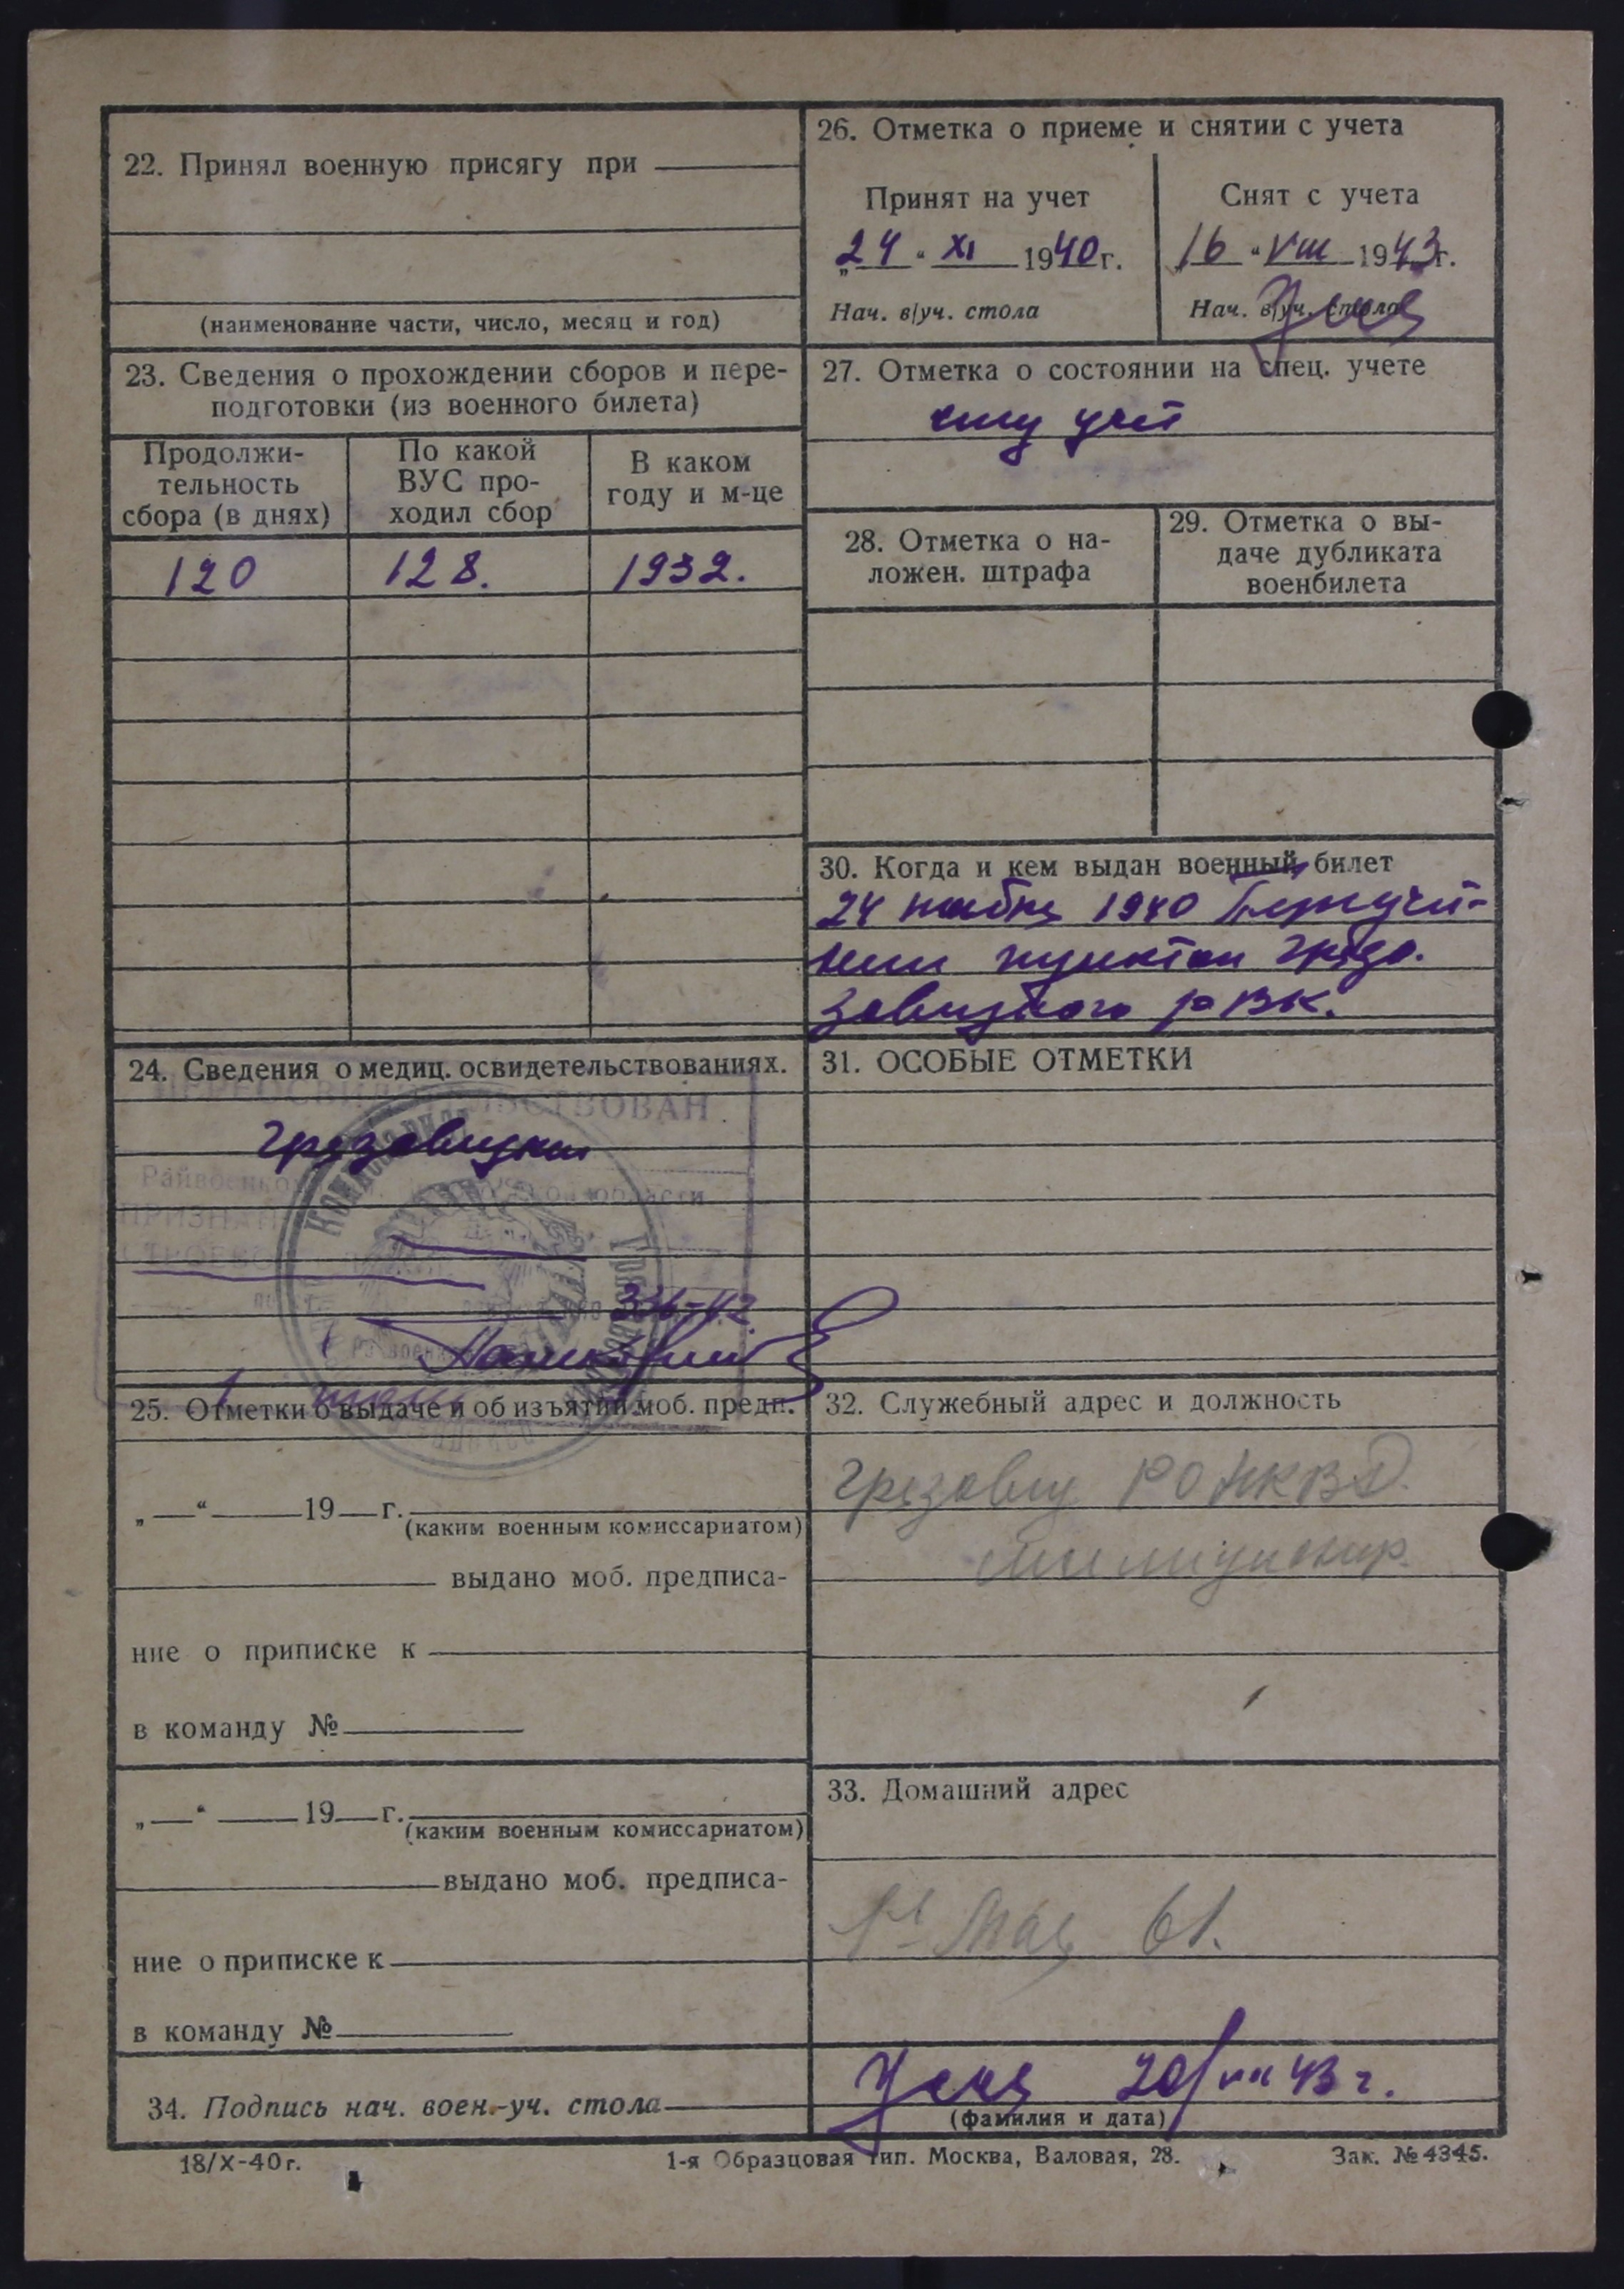 22. Принял военную присягу при
(наименование части, число, месяц и год)
23. Сведения о прохождении сборов и пере-
подготовки (из военного билета)
Продолжи-
тельность
сбора (в днях)
По какой
ВУС про-
ходил сбор
В каком
году и м-це
120 128. 1932.
24. Сведения о медиц. освидетельствованиях.
ПЕРЕОСВИДЕТЕЛЬСТВОВАН
Грязовецким
Райвоенкоматом области
ПРИЗНАН
25. Отметки о выдаче и об изъятии моб. предп.
„ “ 19 г.
(каким военным комиссариатом)
выдано моб. предписа-
ние о приписке к
в команду №
„ “ 19 г.
(каким военным комиссариатом)
выдано моб. предписа-
ние о приписке к
в команду №
26. Отметка о приеме и снятии с учета
Принят на учет
„24“ XI 1940 г.
Нач. в/уч. стола
Снят с учета
„16“ VIII 1943 г.
Нач. в/уч. стола
27. Отметка о состоянии на спец. учете
спец учет
28. Отметка о на-
ложен. штрафа
29. Отметка о вы-
даче дубликата
военбилета
30. Когда и кем выдан военный билет
24 ноября 1940
ным пунктом Грязо-
вецкого РВК.
31. ОСОБЫЕ ОТМЕТКИ
32. Служебный адрес и должность
Грязовец РО НКВД.
милиционер.
33. Домашний адрес
1е Мая 61.
34. Подпись нач. воен.-уч. стола
20/VIII 43 г.
(фамилия и дата)
18/X-40 г. 1-я Образцовая тип. Москва, Валовая, 28. Зак. № 4345.